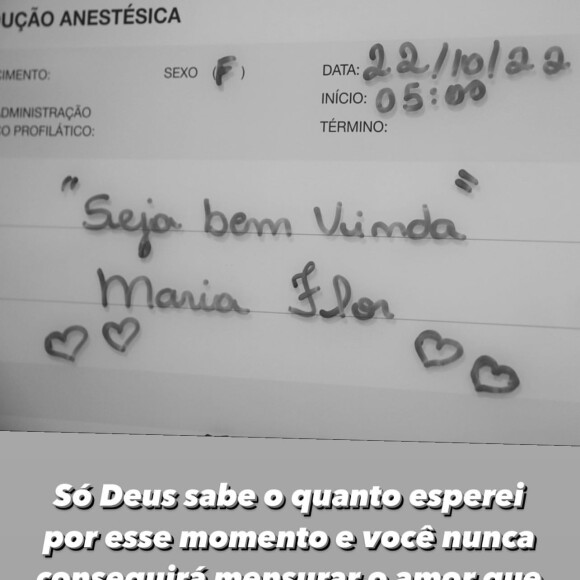 UÇÃO ANESTÉSICA
CIMENTO: SEXO (F) DATA: 22/10/22
INÍCIO: 05:00
DMINISTRAÇÃO
O PROFILÁTICO: TÉRMINO:
"Seja bem Vinda"
Maria Flor
Só Deus sabe o quanto esperei
por esse momento e você nunca
conseguirá mensurar o amor que